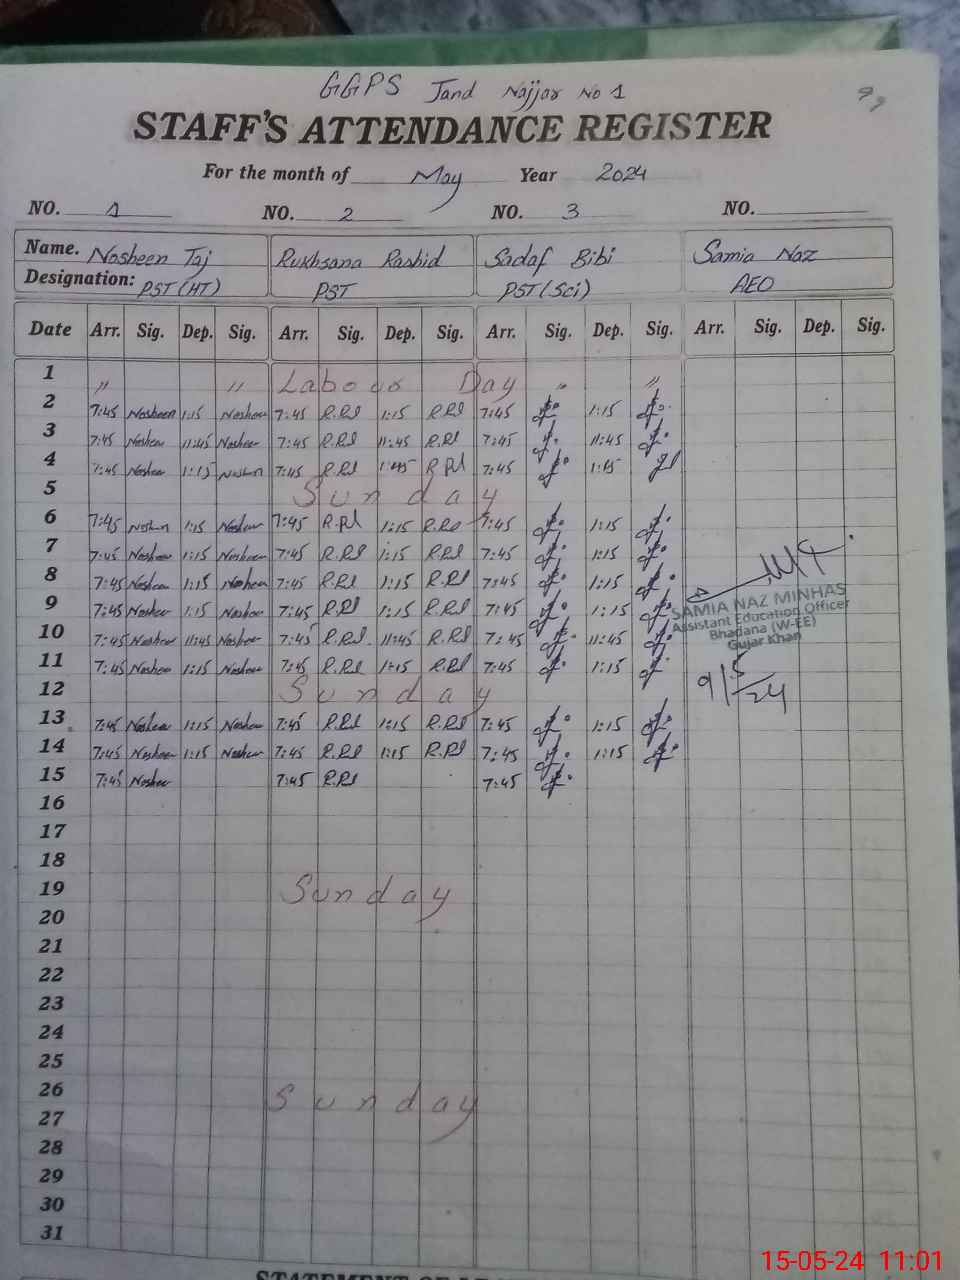 GGPS Jand Najjar No 1
99
STAFF'S ATTENDANCE REGISTER
For the month of May Year 2024
NO. 1 NO. 2 NO. 3 NO.
Name. Nosheen Taj Rukhsana Rashid Sadaf Bibi Samia Naz
Designation: PST (HT) PST PST (Sci) AEO
Date Arr. Sig. Dep. Sig. Arr. Sig. Dep. Sig. Arr. Sig. Dep. Sig. Arr. Sig. Dep. Sig.
1 " " Labour Day " "
2 7:45 Nosheen 1:15 Nosheen 7:45 R.Rd 1:15 R.Rd 7:45 1:15
3 7:45 Nosheen 11:45 Nosheen 7:45 R.Rd 11:45 R.Rd 7:45 11:45
4 7:45 Nosheen 1:15 Nosheen 7:45 R.Rd R.Rd 7:45
5 Sunday
6 7:45 Nosheen 1:15 Nosheen 7:45 R.Rd 1:15 R.Rd 7:45 1:15
7 7:45 Nosheen 1:15 Nosheen 7:45 R.Rd 1:15 R.Rd 7:45 1:15
8 7:45 Nosheen 1:15 Nosheen 7:45 R.Rd 1:15 R.Rd 7:45 1:15
9 7:45 Nosheen 1:15 Nosheen 7:45 R.Rd 1:15 R.Rd 7:45 1:15
SAMIA NAZ MINHAS
Assistant Education Officer
Bhadana (W-EE)
Gujar Khan
10 7:45 Nosheen 11:45 Nosheen 7:45 R.Rd 11:45 R.Rd 7:45 11:45
11 7:45 Nosheen 1:15 Nosheen 7:45 R.Rd 1:15 R.Rd 7:45 1:15
9/5/24
12 Sunday
13 7:45 Nosheen 1:15 Nosheen 7:45 R.Rd 1:15 R.Rd 7:45 1:15
14 7:45 Nosheen 1:15 Nosheen 7:45 R.Rd 1:15 R.Rd 7:45 1:15
15 7:45 Nosheen 7:45 R.Rd 7:45
16
17
18
19 Sunday
20
21
22
23
24
25
26 Sunday
27
28
29
30
31
15-05-24 11:01